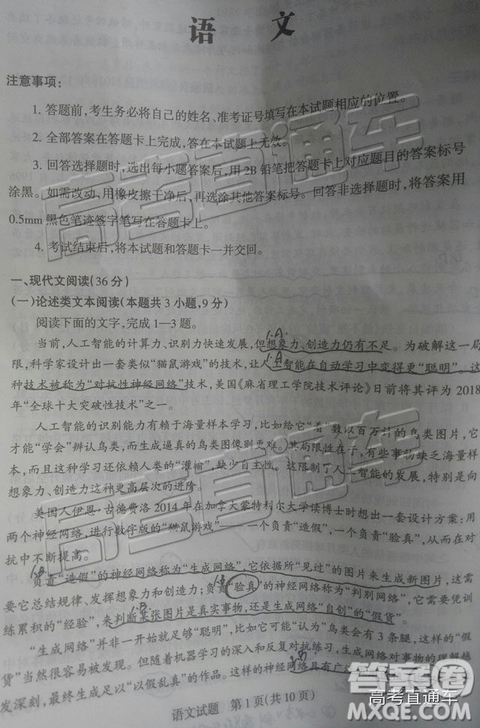 语 文
注意事项：
1. 答题前，考生务必将自己的姓名、准考证号填写在本试题相应的位置。
2. 全部答案在答题卡上完成，答在本试题上无效。
3. 回答选择题时，选出每小题答案后，用 2B 铅笔把答题卡上对应题目的答案标号
涂黑。如需改动，用橡皮擦干净后，再选涂其他答案标号。回答非选择题时，将答案用
0.5mm 黑色笔迹签字笔写在答题卡上。
4. 考试结束后，将本试题和答题卡一并交回。
一、现代文阅读（36 分）
（一）论述类文本阅读（本题共 3 小题，9 分）
阅读下面的文字，完成 1—3 题。
当前，人工智能的计算力、识别力快速发展，但想象力、创造力仍有不足。为破解这一局
限，科学家设计出一套类似“猫鼠游戏”的技术，让人工智能在自动学习中变得更“聪明”，这
种技术被称为“对抗性神经网络”技术，美国《麻省理工学院技术评论》日前将其评为 2018
年“全球十大突破性技术”之一。
人工智能的识别能力有赖于海量样本学习，比如它给“看”数以百万计的鸟类图片，它
才能“学会”辨认鸟类，而生成逼真的鸟类图像则更难。
本而且这种学习还依赖人类的“灌输”，缺少自主性。这限制了人工智能的发展，特别是向
想象力、创造力这种更高层次的进阶。
美国人伊恩·古德费洛 2014 年在加拿大蒙特利尔大学读博士时想出一套设计方案：用
两个神经网络，进行数字版的“猫鼠游戏”——一个负责“造假”，一个负责“验真”，从而在对
抗中不断提高。
负责“造假”的神经网络称为“生成网络”，它依据所“见过”的图片来生成新图片，这需
要它总结规律、发挥想象力和创造力；负责“验真”的神经网络称为“判别网络”，它需要凭训
练累积的“经验”，来判断某张图片是真实事物，还是生成网络“自创”的“假货”。
“生成网络”并非一开始就足够“聪明”，比如它可能“认为”鸟类会有 3 条腿，这样的“假
货”当然很容易被发现。但随着机器学习的深入和反复对抗练习，生成网络对事物的理解越
发深刻，最终生成足以“以假乱真”的作品。这样的神经网络具有
语文试题 第 1 页（共 10 页）
高考直通车
答案圈
MXQE.COM
高考直通车